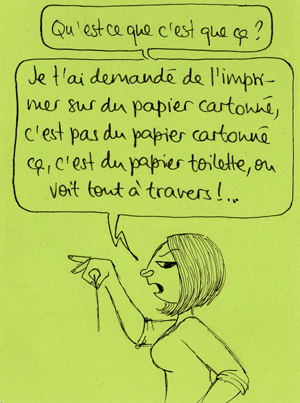 Qu'est ce que c'est que ça ?
Je t'ai demandé de l'impri-
mer sur du papier cartonné,
c'est pas du papier cartonné
ça, c'est du papier toilette, on
voit tout à travers !...